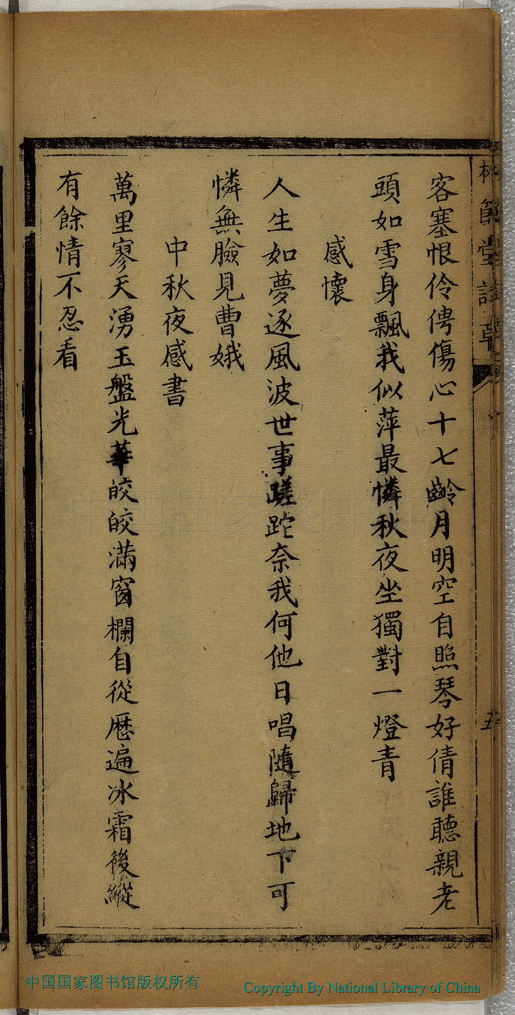 客塞恨伶俜傷心十七齡月明空自照琴好倩誰聽親老
頭如雪身飄我似萍最憐秋夜坐獨對一燈青
感懷
人生如夢逐風波世事蹉跎奈我何他日唱隨歸地下可
憐無臉見曹娥
中秋夜感書
萬里寥天湧玉盤光華皎皎滿窗欄自從歷遍冰霜後縱
有餘情不忍看
五
中国国家图书馆版权所有
Copyright By National Library of China